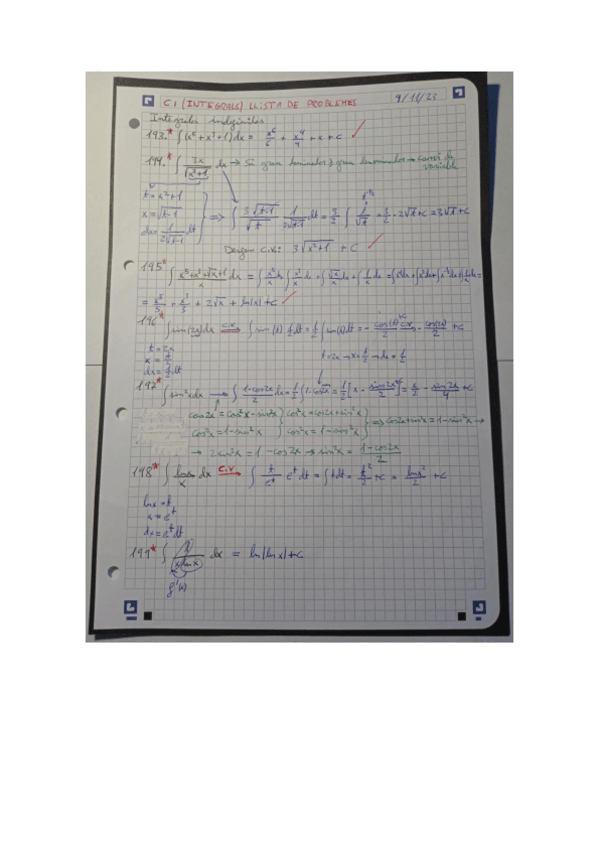 C.I (INTEGRALS) LLISTA DE PROBLEMES 9/11/23
Integrales indefinides
193.* ∫(x⁵+x³+1)dx = x⁶/6 + x⁴/4 + x + C ✓
194.* ∫ 3x/√(x²+1) dx → Si gran numerador gran denominador → canvi de variable
t = x²+1
x = √(t-1)
dx = 1/(2√(t-1)) dt
⇒ ∫ 3√(t-1)/√t · 1/(2√(t-1)) dt = 3/2 ∫ 1/√t = 3/2 · 2√t + C = 3√t + C
C.V: 3√(x²+1) + C ✓
195*
= x⁵/5 + x³/3 + 2√x + ln|x| + C ✓
196* ∫sin(2x)dx C.V ∫sin(t) ½ dt = ½ ∫sin(t)dt = - cos(t)/2 C.V - cos(2x)/2 + C
t = 2x
x = t/2
dx = ½ dt
t = 2x → x = t/2 → dx = ½
197* ∫sin²x dx → ∫ (1-cos2x)/2 dx = ½ ∫ 1-cos2x = ½ [x - sin2x/2] = x/2 - sin2x/4 + C
cos2x = cos²x - sin²x } cos²x = cos2x + sin²x
cos²x = 1 - sin²x } cos²x = 1 - sin²x ⇒ cos2x + sin²x = 1 - sin²x →
→ 2sin²x = 1 - cos2x → sin²x = (1-cos2x)/2
198* ∫ lnx/x dx C.V ∫ t/eᵗ eᵗ dt = ∫ t dt = t²/2 + C = lnx²/2 + C
lnx = t
x = eᵗ
dx = eᵗ dt
199* ∫ 1/(x lnx) dx = ln|lnx| + C
f'(x)